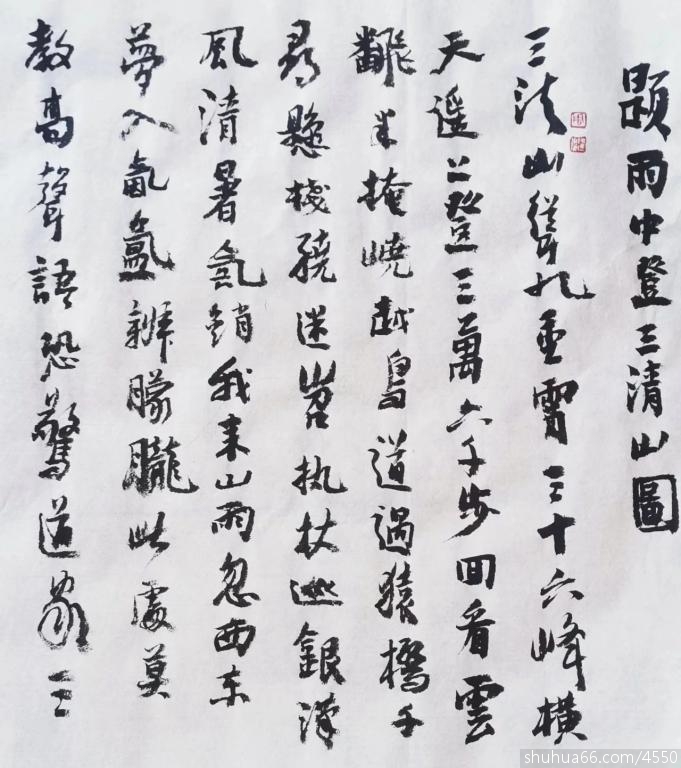 題雨中登三清山圖
三清山聳九重霄三十六峰橫
天遥上登三萬六千步回看雲
飜半掩嶢越鳥道過猿橋千
尋懸棧繞迷岧执杖銀漢
風清暑氣銷我来山雨忽西东
夢入氤氳辨朦朧此處莫
教高聲語恐驚道家三
shuhua66.com/4550